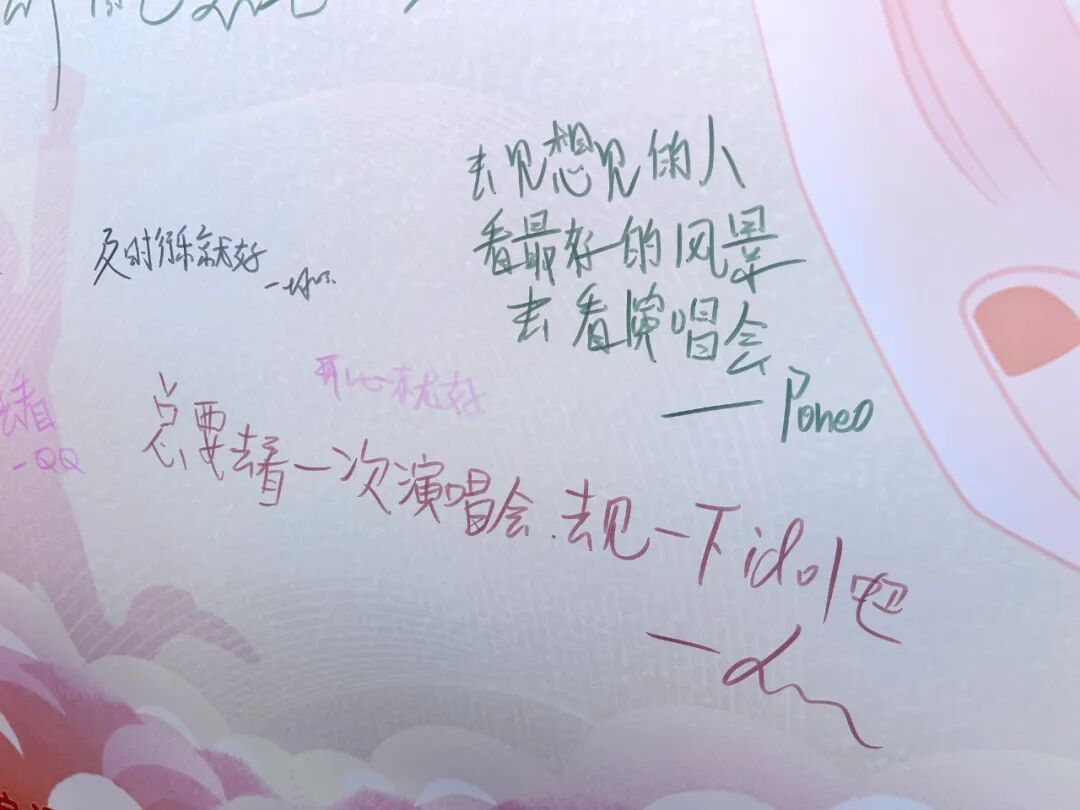 去见想见的人
看最好的风景
去看演唱会
—— Poneo
及时行乐就好
开心就好
去看
-QQ
总要去看一次演唱会.去见一下idol吧